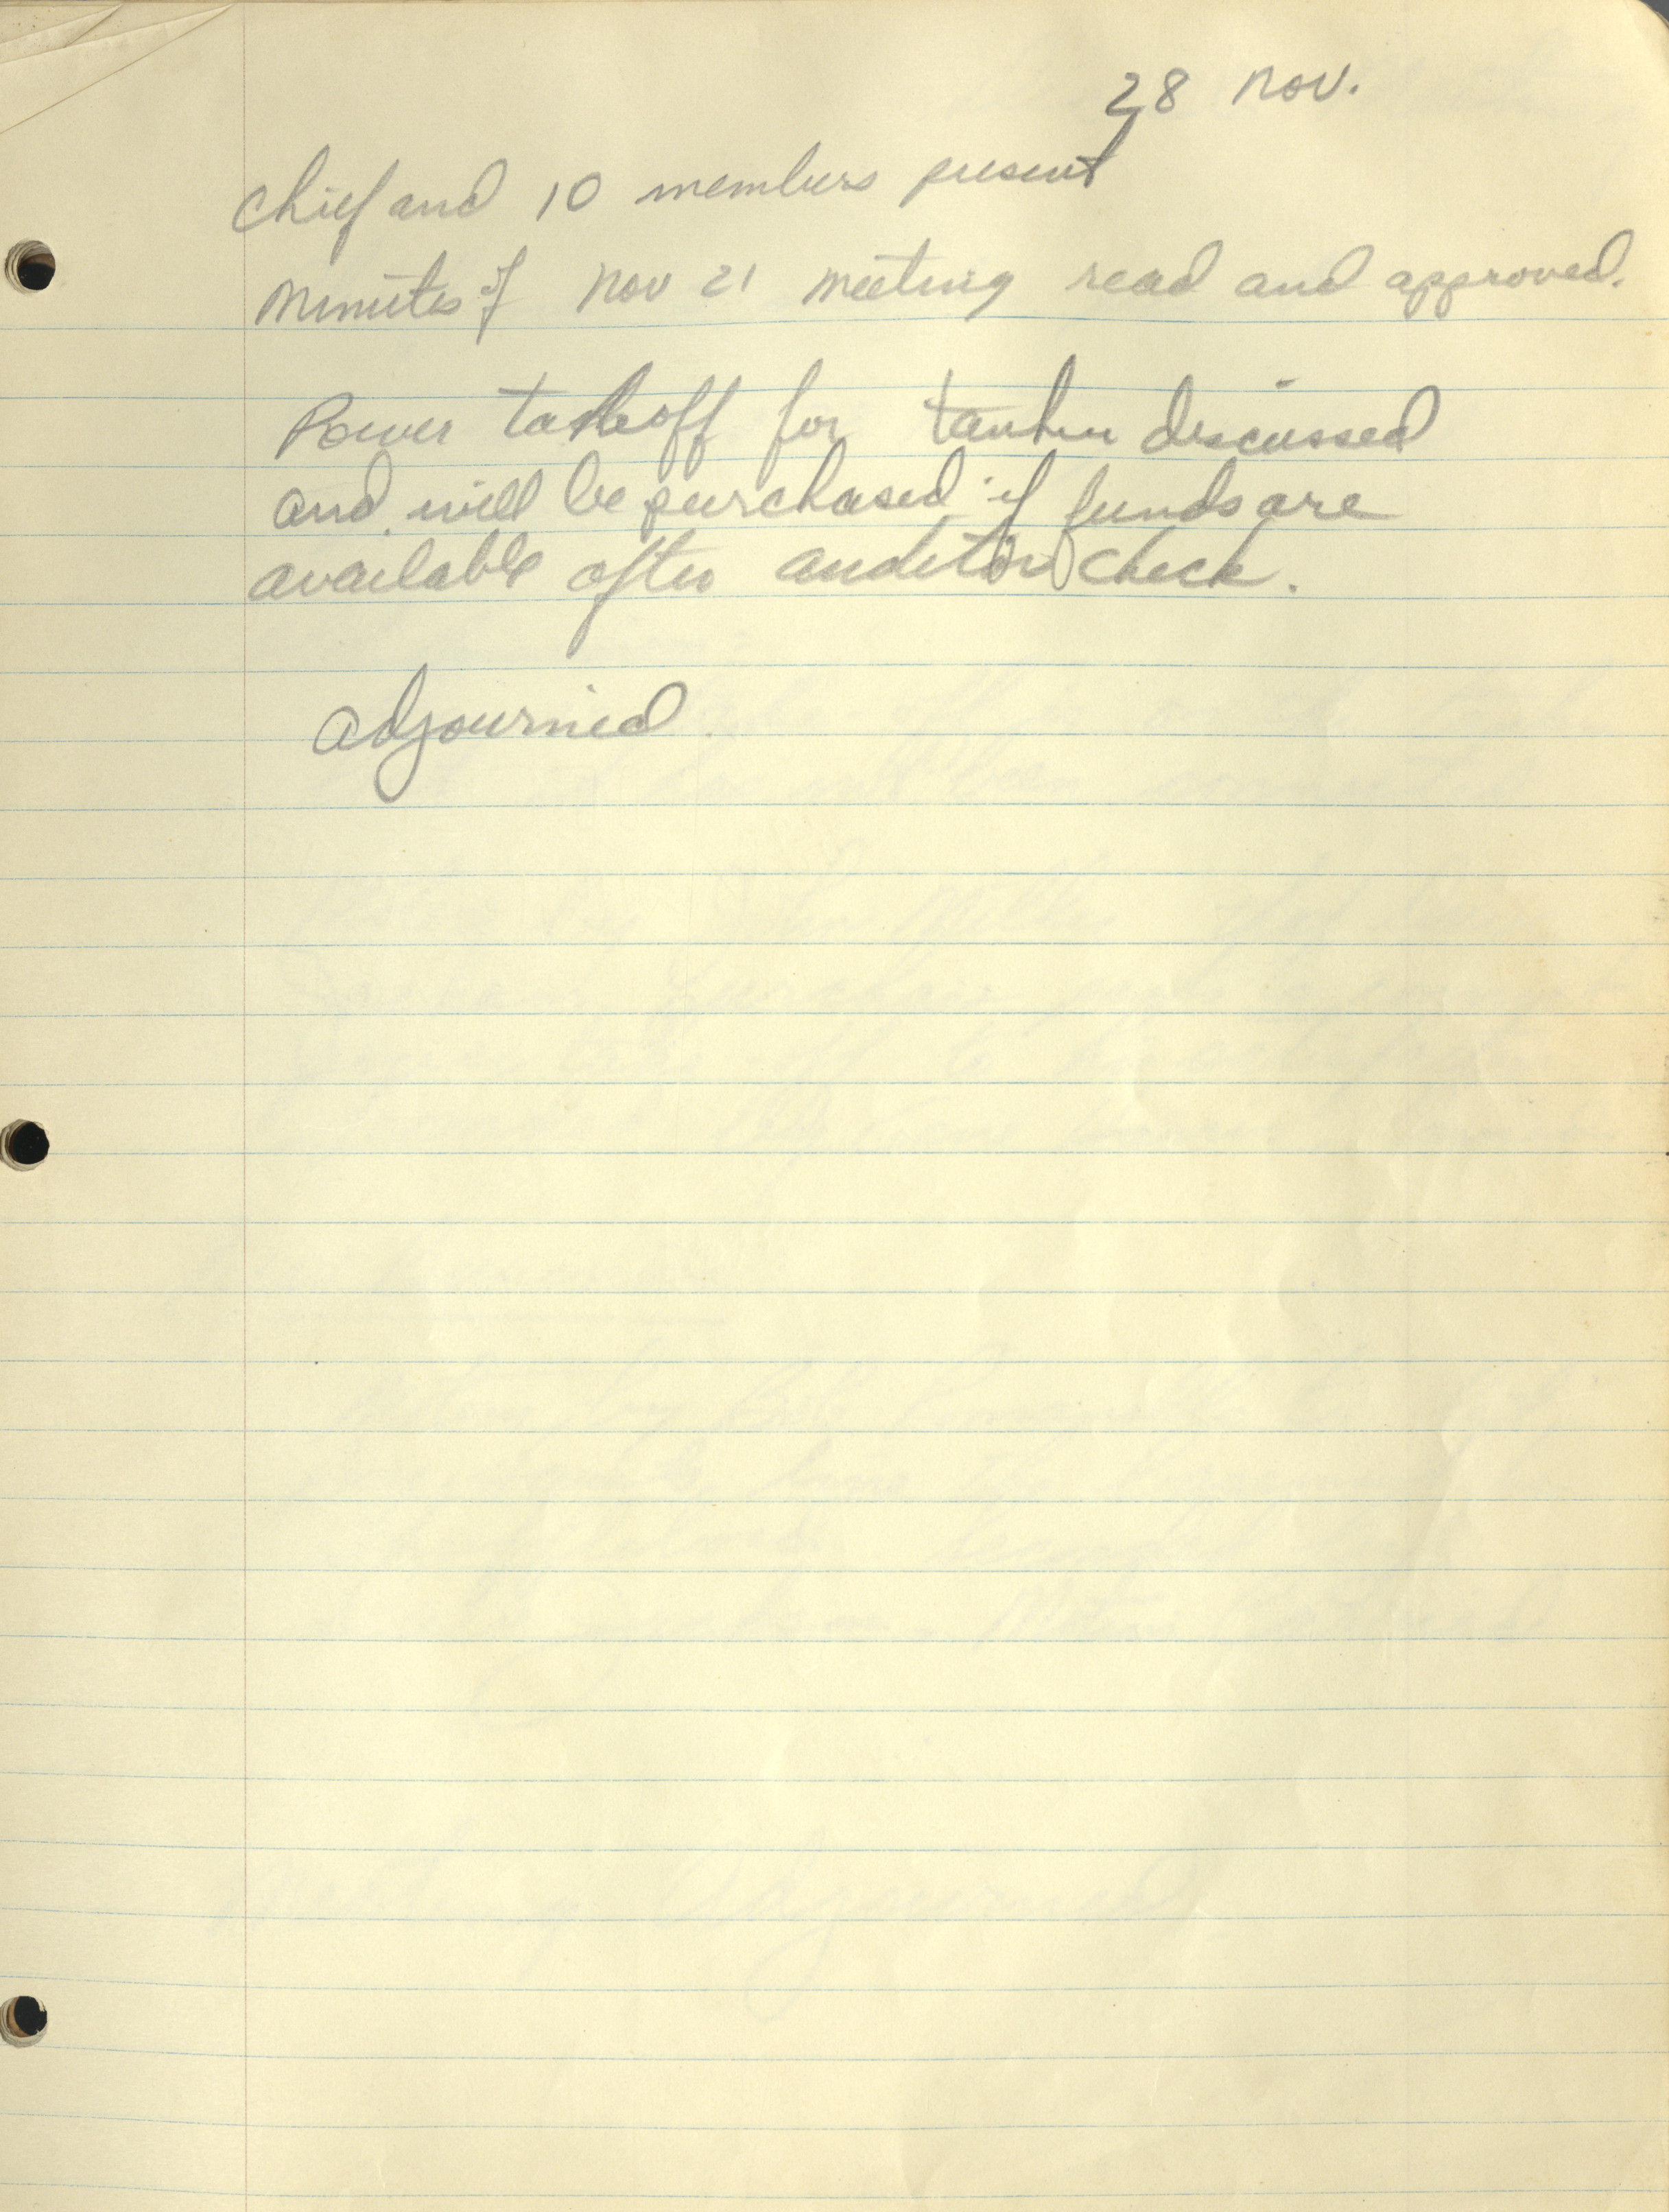 28 Nov.
Chief and 10 members present
Minutes of Nov 21 meeting read and approved.
Power takeoff for tanker discussed
and will be purchased if funds are
available after auditors check.
Adjourned.